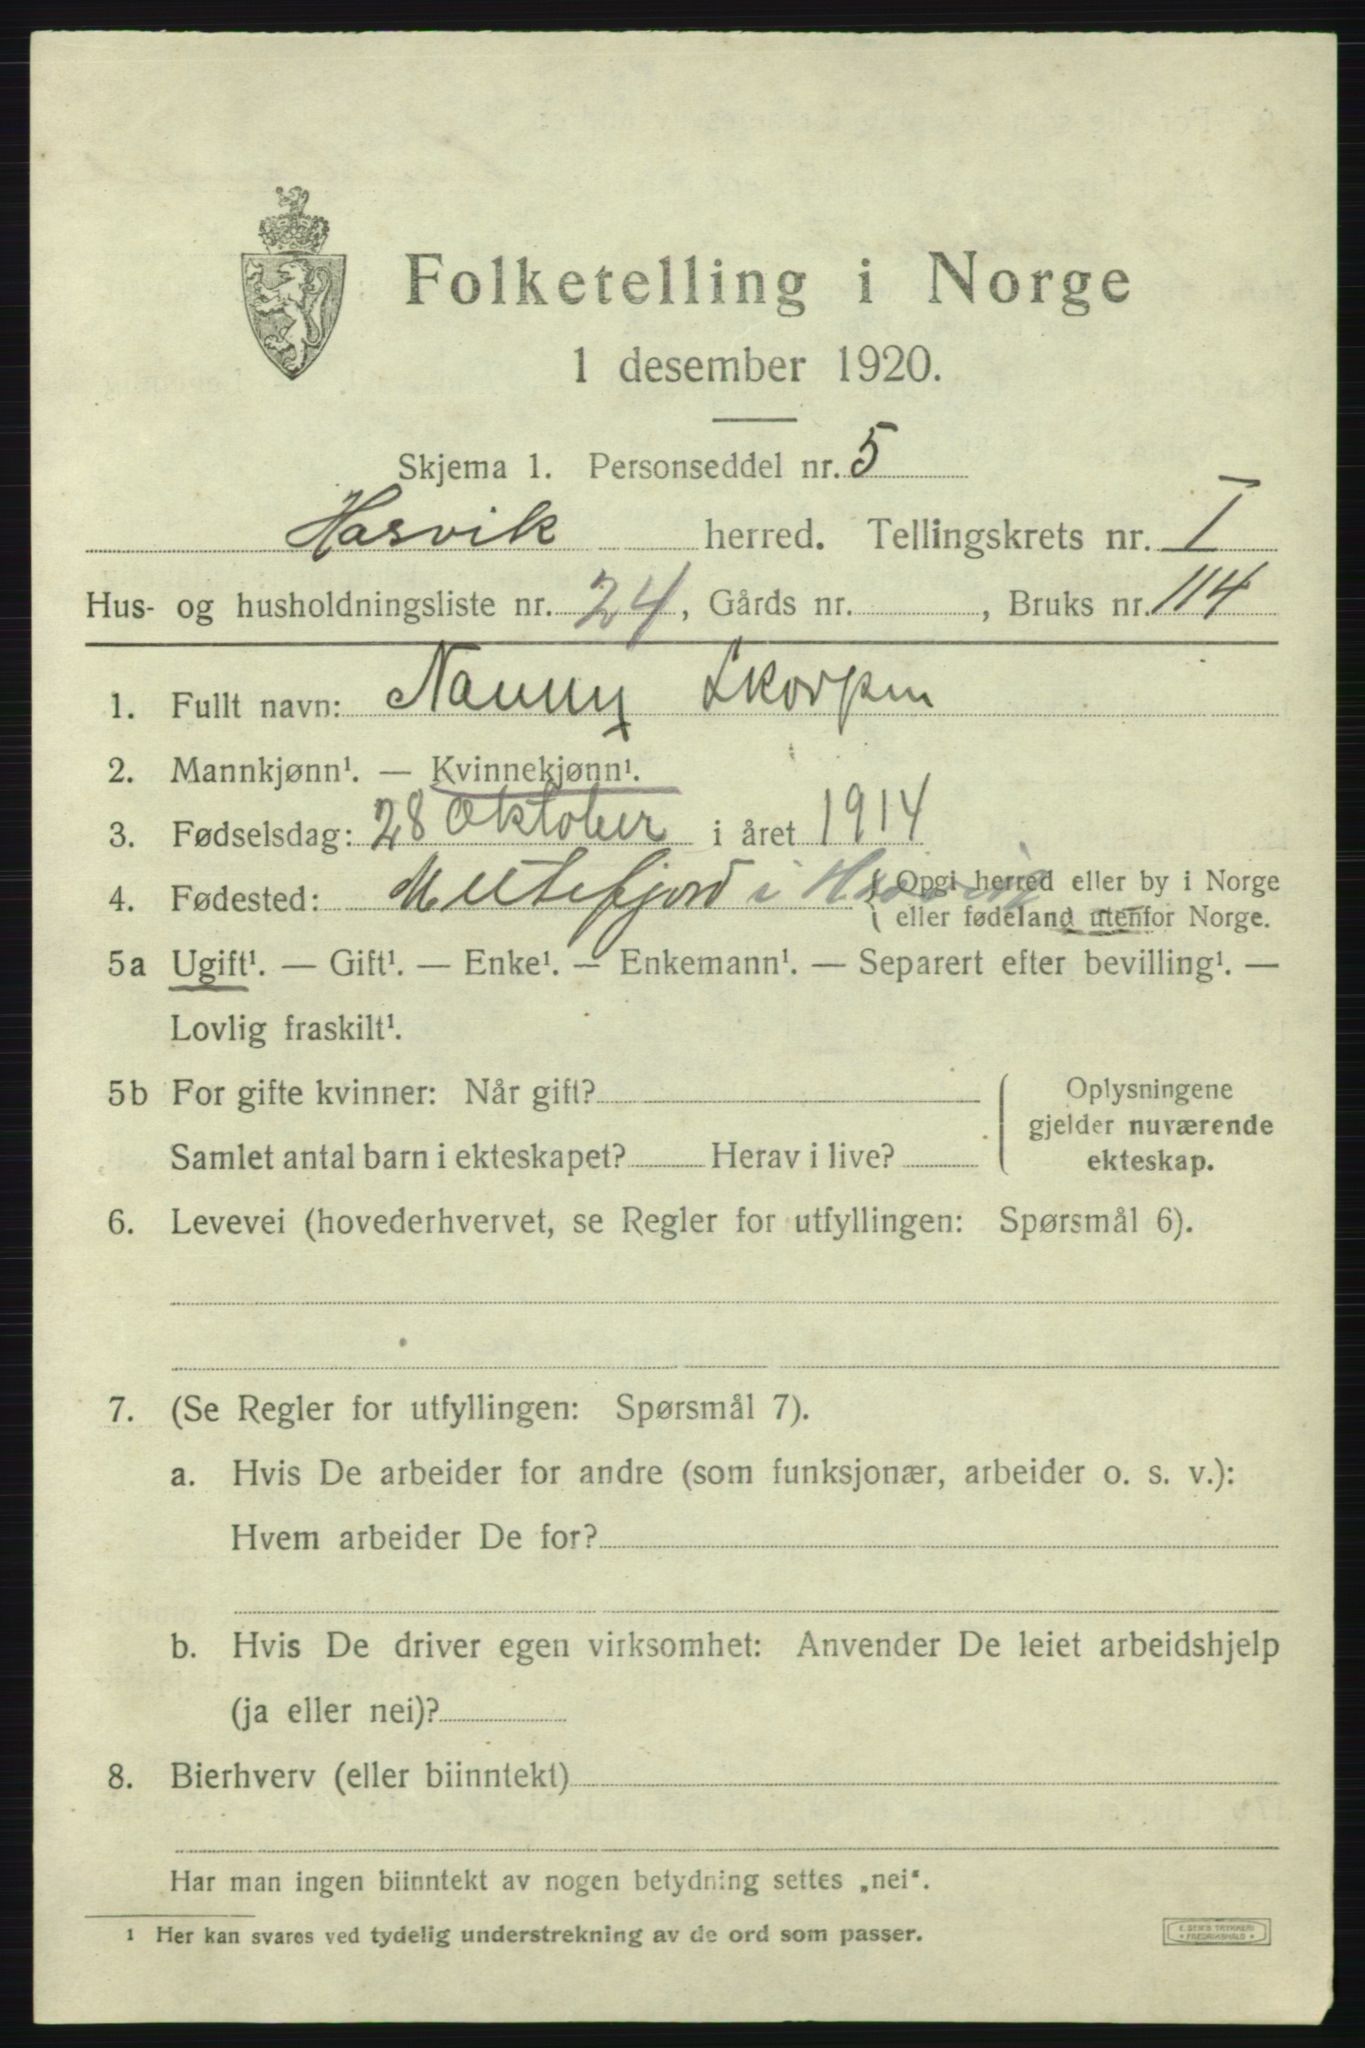 Folketelling i Norge
1 desember 1920.
Skjema 1. Personseddel nr. 5
Hasvik herred. Tellingskrets nr. I
Hus- og husholdningsliste nr. 24, Gårds nr. , Bruks nr. 114
1. Fullt navn: Nanny Skorpen
2. Mannkjønn¹. — Kvinnekjønn¹.
3. Fødselsdag: 28 Oktober i året 1914
4. Fødested: i Hasvik
{ Opgi herred eller by i Norge
eller fødeland utenfor Norge.
5a Ugift¹. — Gift¹. — Enke¹. — Enkemann¹. — Separert efter bevilling¹. —
Lovlig fraskilt¹.
5b For gifte kvinner: Når gift?
Samlet antal barn i ekteskapet? Herav i live?
Oplysningene
gjelder nuværende
ekteskap.
6. Levevei (hovederhvervet, se Regler for utfyllingen: Spørsmål 6).
7. (Se Regler for utfyllingen: Spørsmål 7).
a. Hvis De arbeider for andre (som funksjonær, arbeider o. s. v.):
Hvem arbeider De for?
b. Hvis De driver egen virksomhet: Anvender De leiet arbeidshjelp
(ja eller nei)?
8. Bierhverv (eller biinntekt)
Har man ingen biinntekt av nogen betydning settes „nei“.
¹ Her kan svares ved tydelig understrekning av de ord som passer.
E. SEM'S TRYKKERI
FREDRIKSHALD